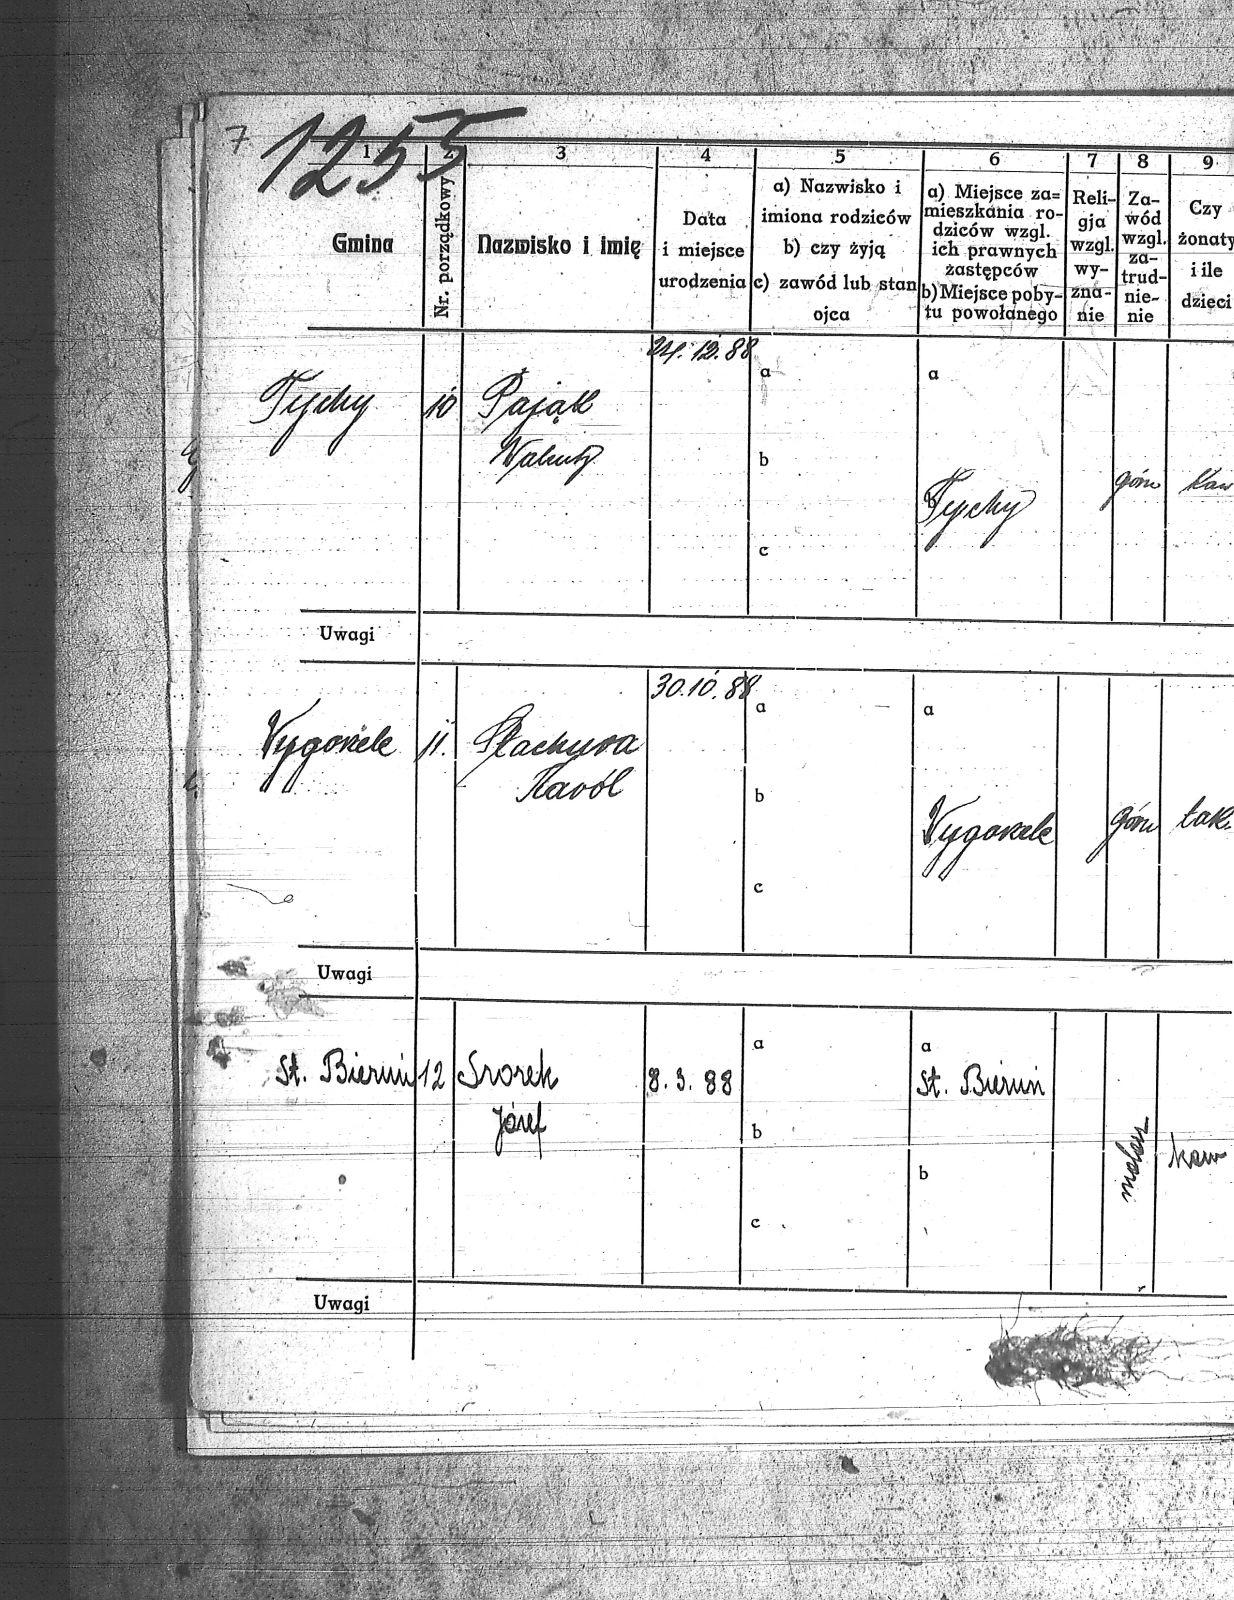 7
1255
1
2
3
4
5
6
7
8
9
Gmina
Nr. porządkowy
Nazwisko i imię
Data
i miejsce
urodzenia
a) Nazwisko i
imiona rodziców
b) czy żyją
c) zawód lub stan
ojca
a) Miejsce za=
mieszkania ro-
dziców wzgl.
ich prawnych
zastępców
b) Miejsce poby-
tu powołanego
Reli-
gja
wzgl.
wy-
zna-
nie
Za-
wód
wzgl.
za-
trud-
nie-
nie
Czy
żonaty
i ile
dzieci
24. 12. 88
a
a
Tychy
10
Pająk
b
b
Tychy
górn
kaw
c
Uwagi
30.10.88
a
a
11.
Karól
b
górn
tak.
c
Uwagi
a
a
St. Bieruń
12
Józef
8. 3. 88
St. Bieruń
b
b
malarz
kaw
c
Uwagi